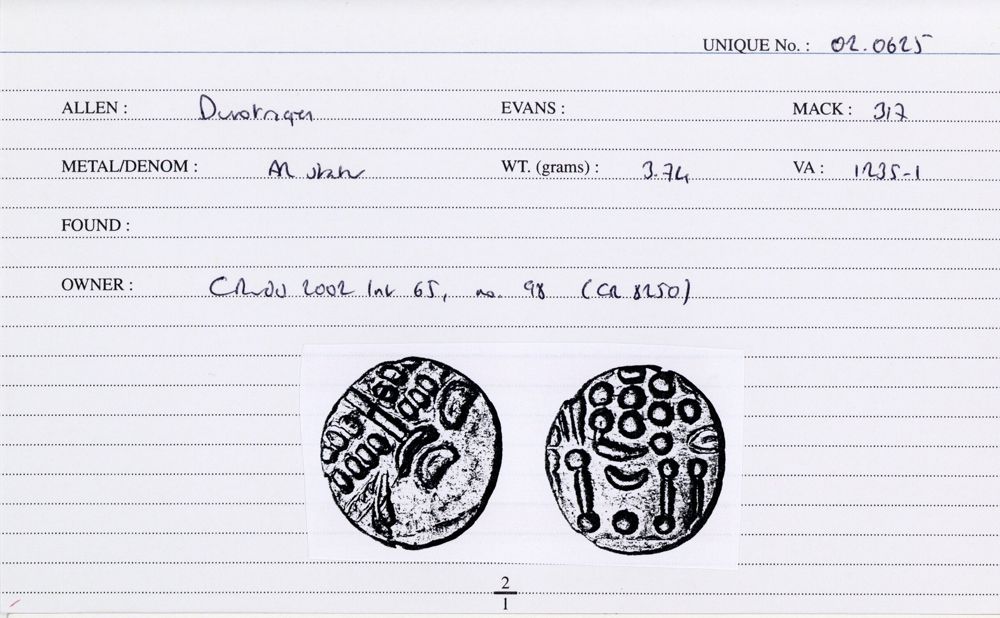 UNIQUE No. : 02.0625
ALLEN : Durotriges EVANS : MACK : 317
METAL/DENOM : AR stater WT. (grams) : 3.74 VA : 1235-1
FOUND :
OWNER : 2002 65, no. 98 (CR 8250)
2
1